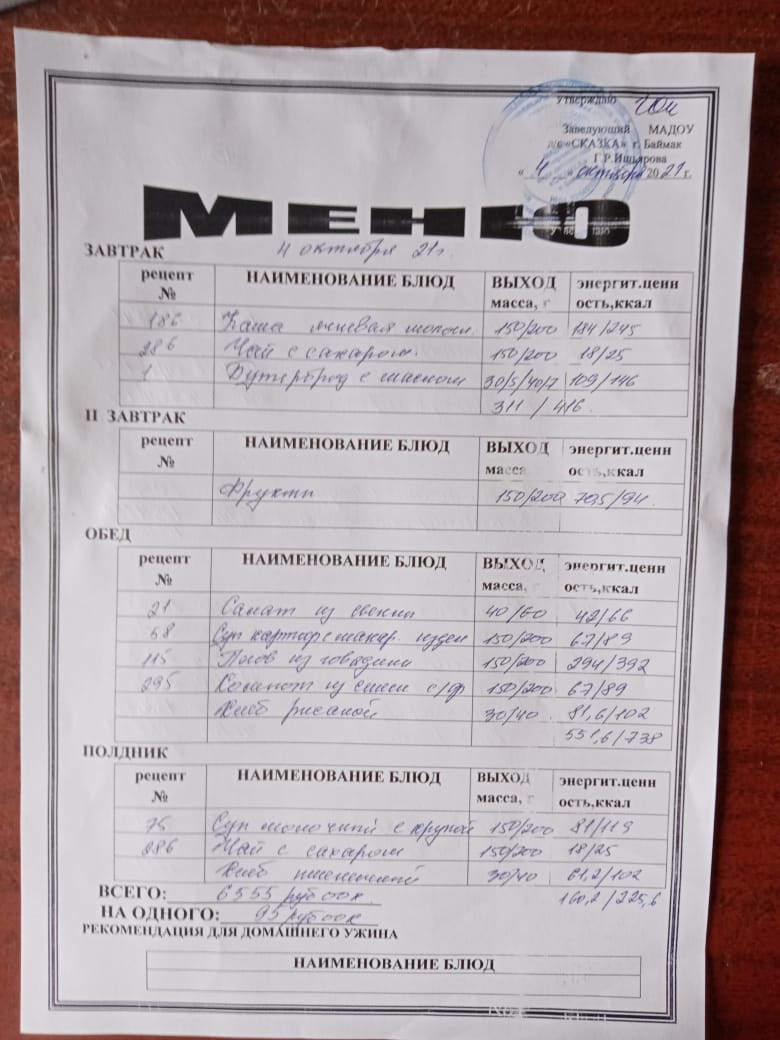 Утверждаю
Заведующий МАДОУ
д/с «СКАЗКА» г. Баймак
Г.Р.Ишьярова
« 4 » октября 2021 г.
МЕНЮ
ЗАВТРАК 4 октября 21г.
рецепт № НАИМЕНОВАНИЕ БЛЮД ВЫХОД масса, г энергит.ценность,ккал
186 Каша ячневая молочн. 150/200 184/245
286 Чай с сахаром. 150/200 18/25
1 Бутерброд с маслом 30/5/40/7 109/146
311 / 416.
II ЗАВТРАК
рецепт № НАИМЕНОВАНИЕ БЛЮД ВЫХОД масса энергит.ценность,ккал
Фрукты 150/200 70,5/94.
ОБЕД
рецепт № НАИМЕНОВАНИЕ БЛЮД ВЫХОД масса, энергит.ценность,ккал
21 Салат из свеклы 40/60 42/66
58 Суп картоф с макар. издел 150/200 67/89
115 Плов из говядины 150/200 294/392
295 Компот из смеси с/ф 150/200 67/89
Хлеб ржаной 30/40 81,6/102
551,6/738
ПОЛДНИК
рецепт № НАИМЕНОВАНИЕ БЛЮД ВЫХОД масса, г энергит.ценность,ккал
75 Суп молочный с крупой 150/200 81/119
286 Чай с сахаром 150/200 18/25
Хлеб пшеничный 30/40 61,2/102
160,2/225,6
ВСЕГО: 6555 руб 00к
НА ОДНОГО: 95 руб 00к
РЕКОМЕНДАЦИЯ ДЛЯ ДОМАШНЕГО УЖИНА
НАИМЕНОВАНИЕ БЛЮД